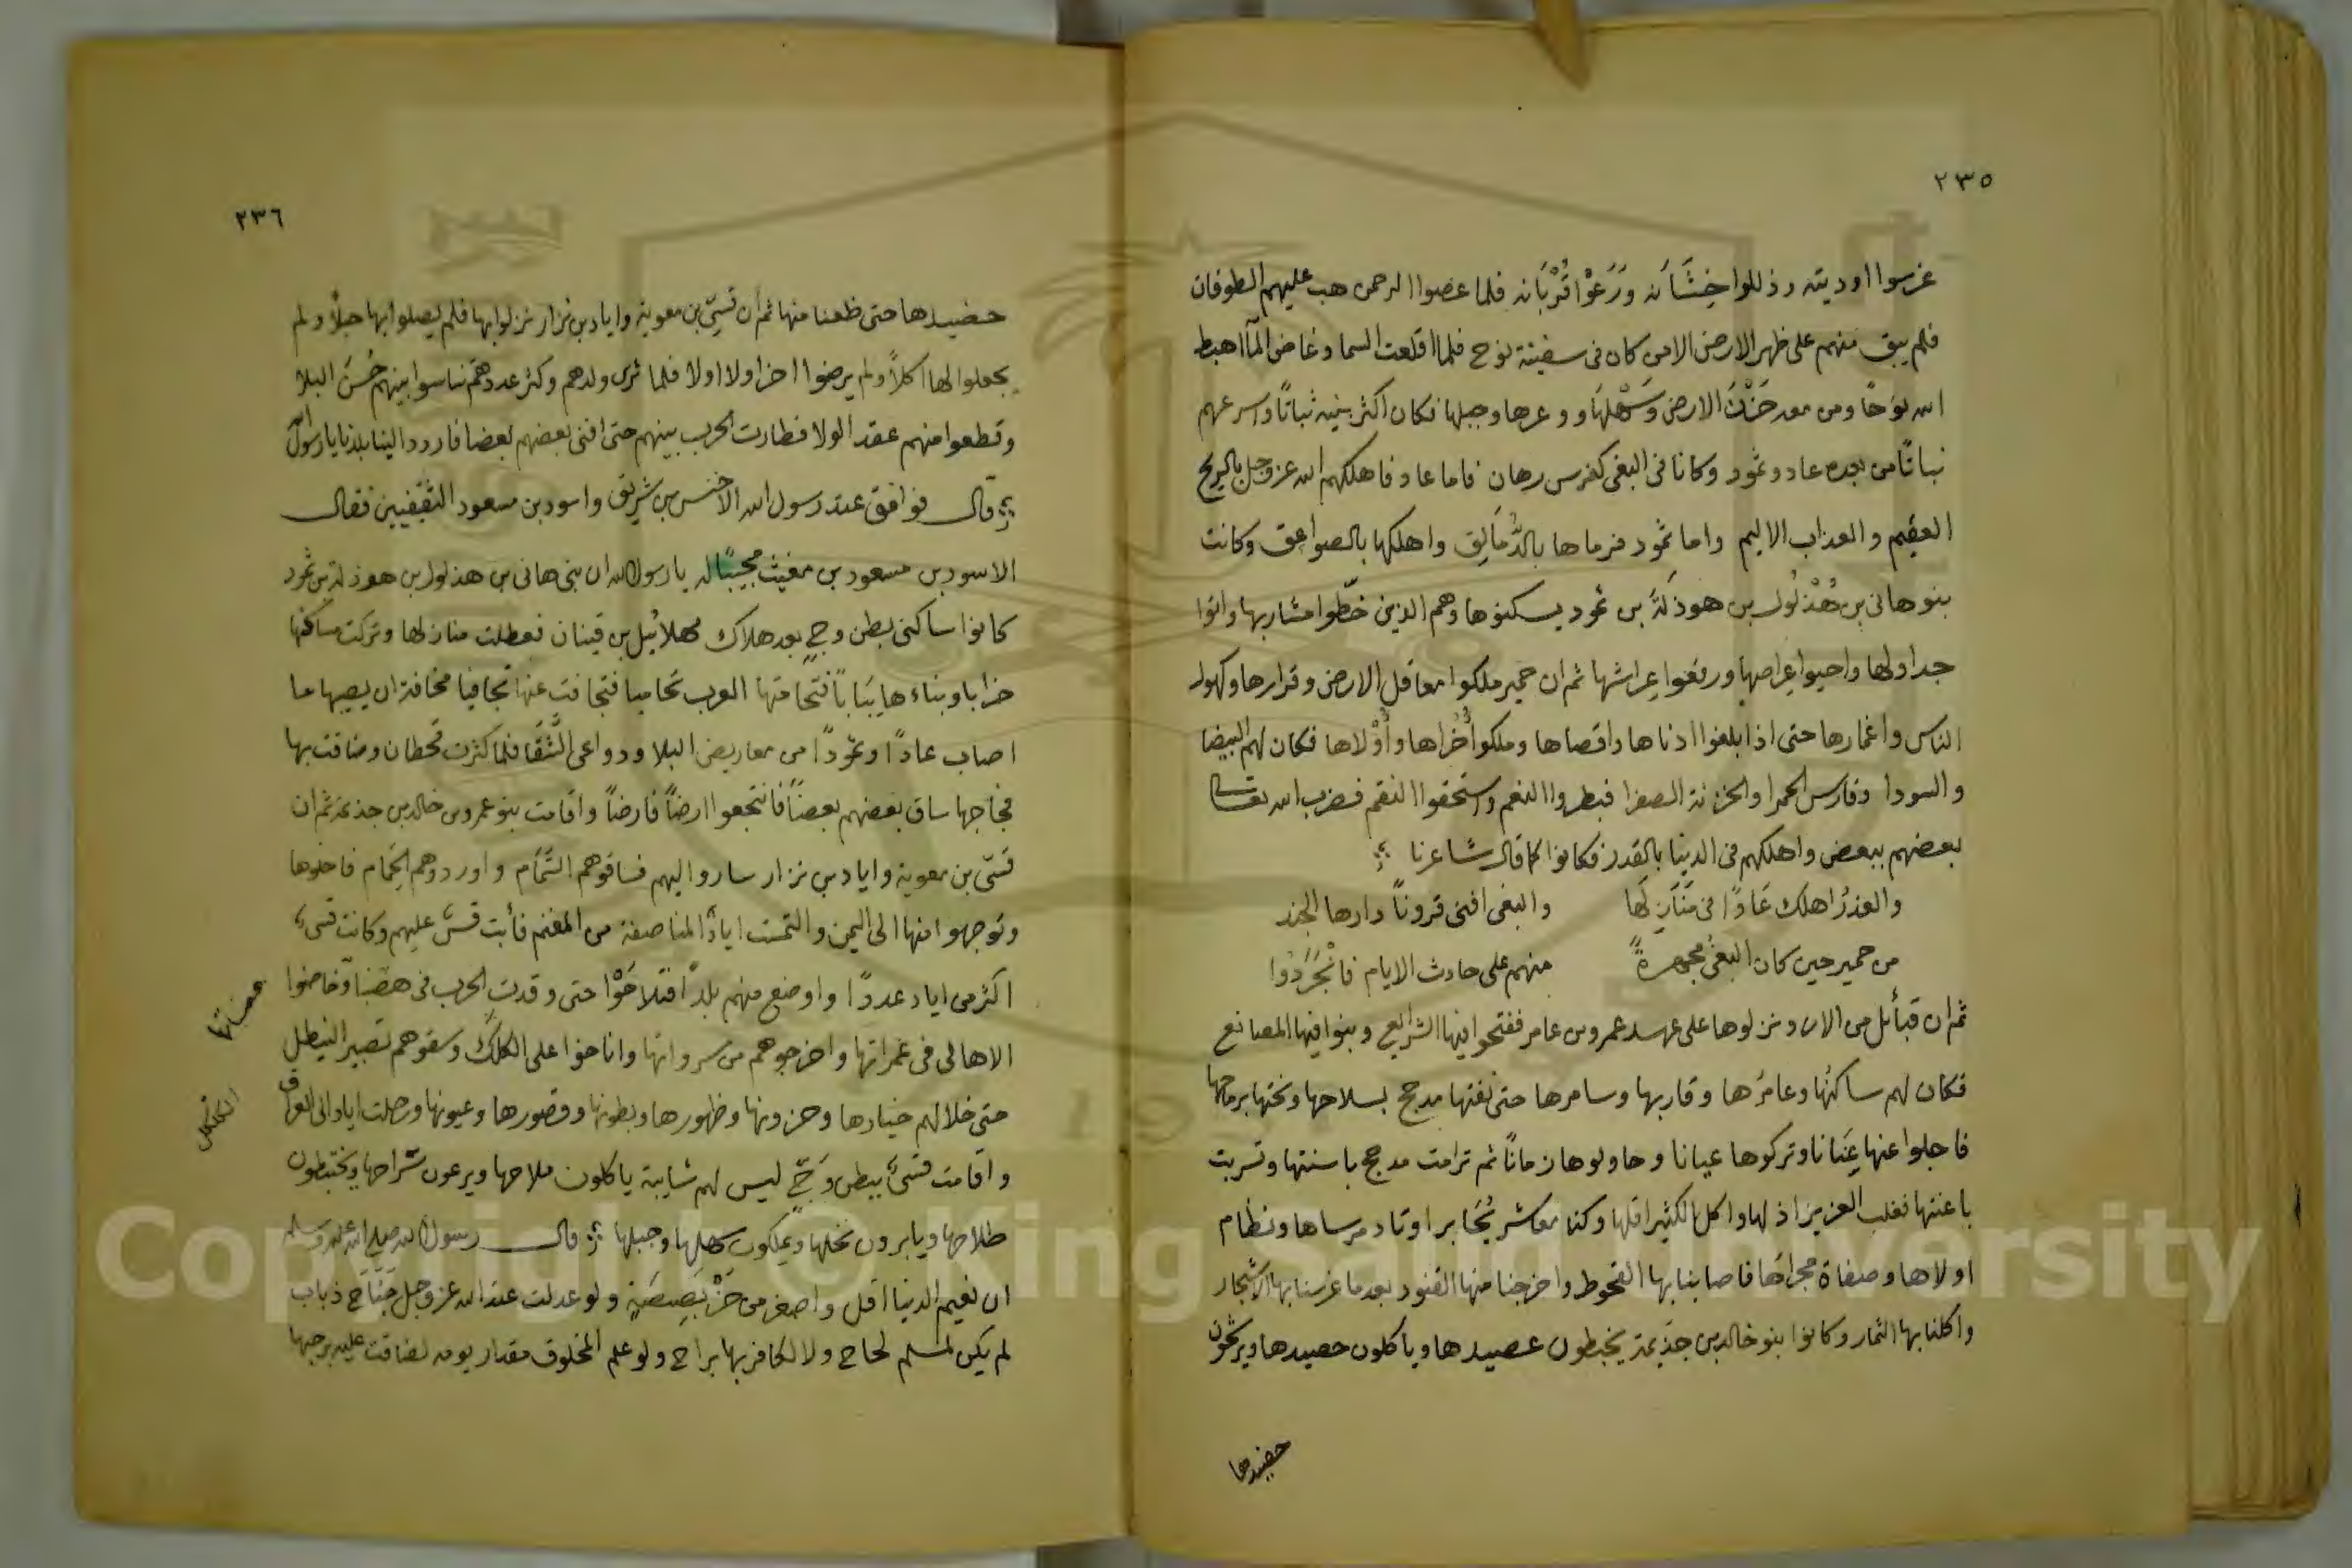 ٢٣٥
غرسوا اوديته وذللوا خِشَانه ورَعَوْا قُرْبَانه فلما عصوا الرحمن هب عليهم الطوفان
فلم يبق منهم على ظهر الارض الا من كان في سفينة نوح فلما اقلعت السما وغاض المآ اهبط
الله نوحًا ومن معه حَزْنَ الارض وَسَهْلهَا ووعرها وجبلها فكان اكثر بنيه ثباتًا واسرعهم
نباتًا من بعده عاد وثمود وكانا في البغي كفرسي رهان فاما عاد فاهلكهم الله عز وجل بالريح
العقيم والعذاب الاليم واما ثمود فرماها بالدُّمَالِق واهلكها بالصواعق وكانت
بنو هاني بن هُذْلُول بن هوذلَة بن ثمود يسكنوها وهم الذين خطّوا مشاربها واتوا
جداولها واحيوا عِراصها ورفعوا عِراشها ثم ان حمير ملكوا معاقل الارض وقرارها وكهول
الناس واغمارها حتى اذا بلغوا ادناها واقصاها وملكوا أُخْراها وأُوْلاها فكان لهم البيضا
والسودا وفارس الحمرا والخزنة الصفرا فبطروا النعم واستحقوا النقم فضرب الله تعالى
بعضهم ببعض واهلكهم في الدنيا بالغدر فكانوا كما قال شاعرنا
والغدرُ اهلك عَادًا في مَنَازِلَها والبغي افنى قرونًا دارها الجند
من حمير حين كان البغيُ مجهرةً منهم على حادث الايام فانْجَرَدُوا
ثم ان قبائل من الازد نزلوها على عهد عمرو بن عامر ففتحوا فيها الشرايع وبنوا فيها المصانع
فكان لهم ساكنُها وعامرُها وقاربها وسامرها حتى نفتها مدحج بسلاحها ونحتها برماحها
فاجلوا عنها عِنَانا وتركوها عيانا وحاولوها زمانًا ثم ترامت مدحج باسنتها وتسربت
باعنتها فغلب العزيز اذلها واكل الكثير اقلها وكنا معاشر يُحَابر اوتاد مرساها ونظام
اولاها وصفاة مجراها فاصابنا بها القحوط واخرجنا منها القنود بعدما غرسنا بها الاشجار
واكلنا بها الثمار وكانوا بنو خالد بن جَذيمة يخبطون عصيدها وياكلون حصيدها ويرشحون
حضيدها
٢٣٦
حضيدها حتى ظعنا منها ثم ان قسيّ بن معوية واياد بن نزار نزلوا بها فلم يصلوا بها حبلًا ولم
يجعلوا لها اكلًا ولم يرضوا اخرا ولا اولا فلما ثرى ولدهم وكثر عددهم تناسوا بينهم حُسنَ البلا
وقطعوا منهم عقد الولا فطارت الحرب بينهم حتى افنى بعضهم بعضا فاردد الينا بلدنا يا رسول الله
قال فوافق عند رسول الله الاخنس بن شريق واسود بن مسعود الثقفيين فقال
الاسود بن مسعود بن مغيث مجيبًا له يا رسول الله ان بني هاني بن هذلول بن هوذلة بن ثمود
كانوا ساكنى بطن وجٍ بعد هلاك مهلائيل بن قينان فعطلت منازلها وتركت مساكنها
خرابا وبناءها يَبَابًا فتحامتها العرب تحاميا فتجافت عنها تجافيا مخافة ان يصيبها ما
اصاب عادًا وثمودًا من معاريض البلا ودواعي الشَّقَا فلما كثرت قحطان وضاقت بها
فجاجها ساق بعضهم بعضًا فانتجعوا ارضًا فارضًا واقامت بنو عمرو بن خالد بن جذيمة ثم ان
قسّى بن معوية واياد بن نزار ساروا اليهم فساقوهم السَّمَام واوردوهم الحِمام فاخلوها
وتوجهوا منها الى اليمن والتمست اياد المناصفة من المغنم فأبت قسىّ عليهم وكانت قسىّ
اكثر من اياد عددًا واوضع منهم بلدًا فتلاحَوْا حتى وقدت الحرب في هضباتها فخاضوا
الاهالي في غمراتها واخرجوهم من سرواتها واناخوا على الكلكل وسقوهم تصبير النيطل
حتى خلا لهم خيارها وحزونها وظهورها وبطونها وقصورها وعيونها ورحلت اياد الى العراق
واقامت قسىّ ببطن وَجٍّ ليس لهم شايبة ياكلون ملاحها ويرعون سَراحها ويختبطون
طلاحها ويابرون نخلها ويملكون سهلها وجبلها قال رسول الله صلى الله عليه وسلم
ان نعيم الدنيا اقل واصغر من خَرْبَصِيصَةٍ ولو عدلت عند الله عز وجل جَنَاح ذباب
لم يكن لمسلم لحاح ولا لكافر بها براح ولو علم المخلوق مقدار يومه لضاقت عليه برحبها
الكلكل